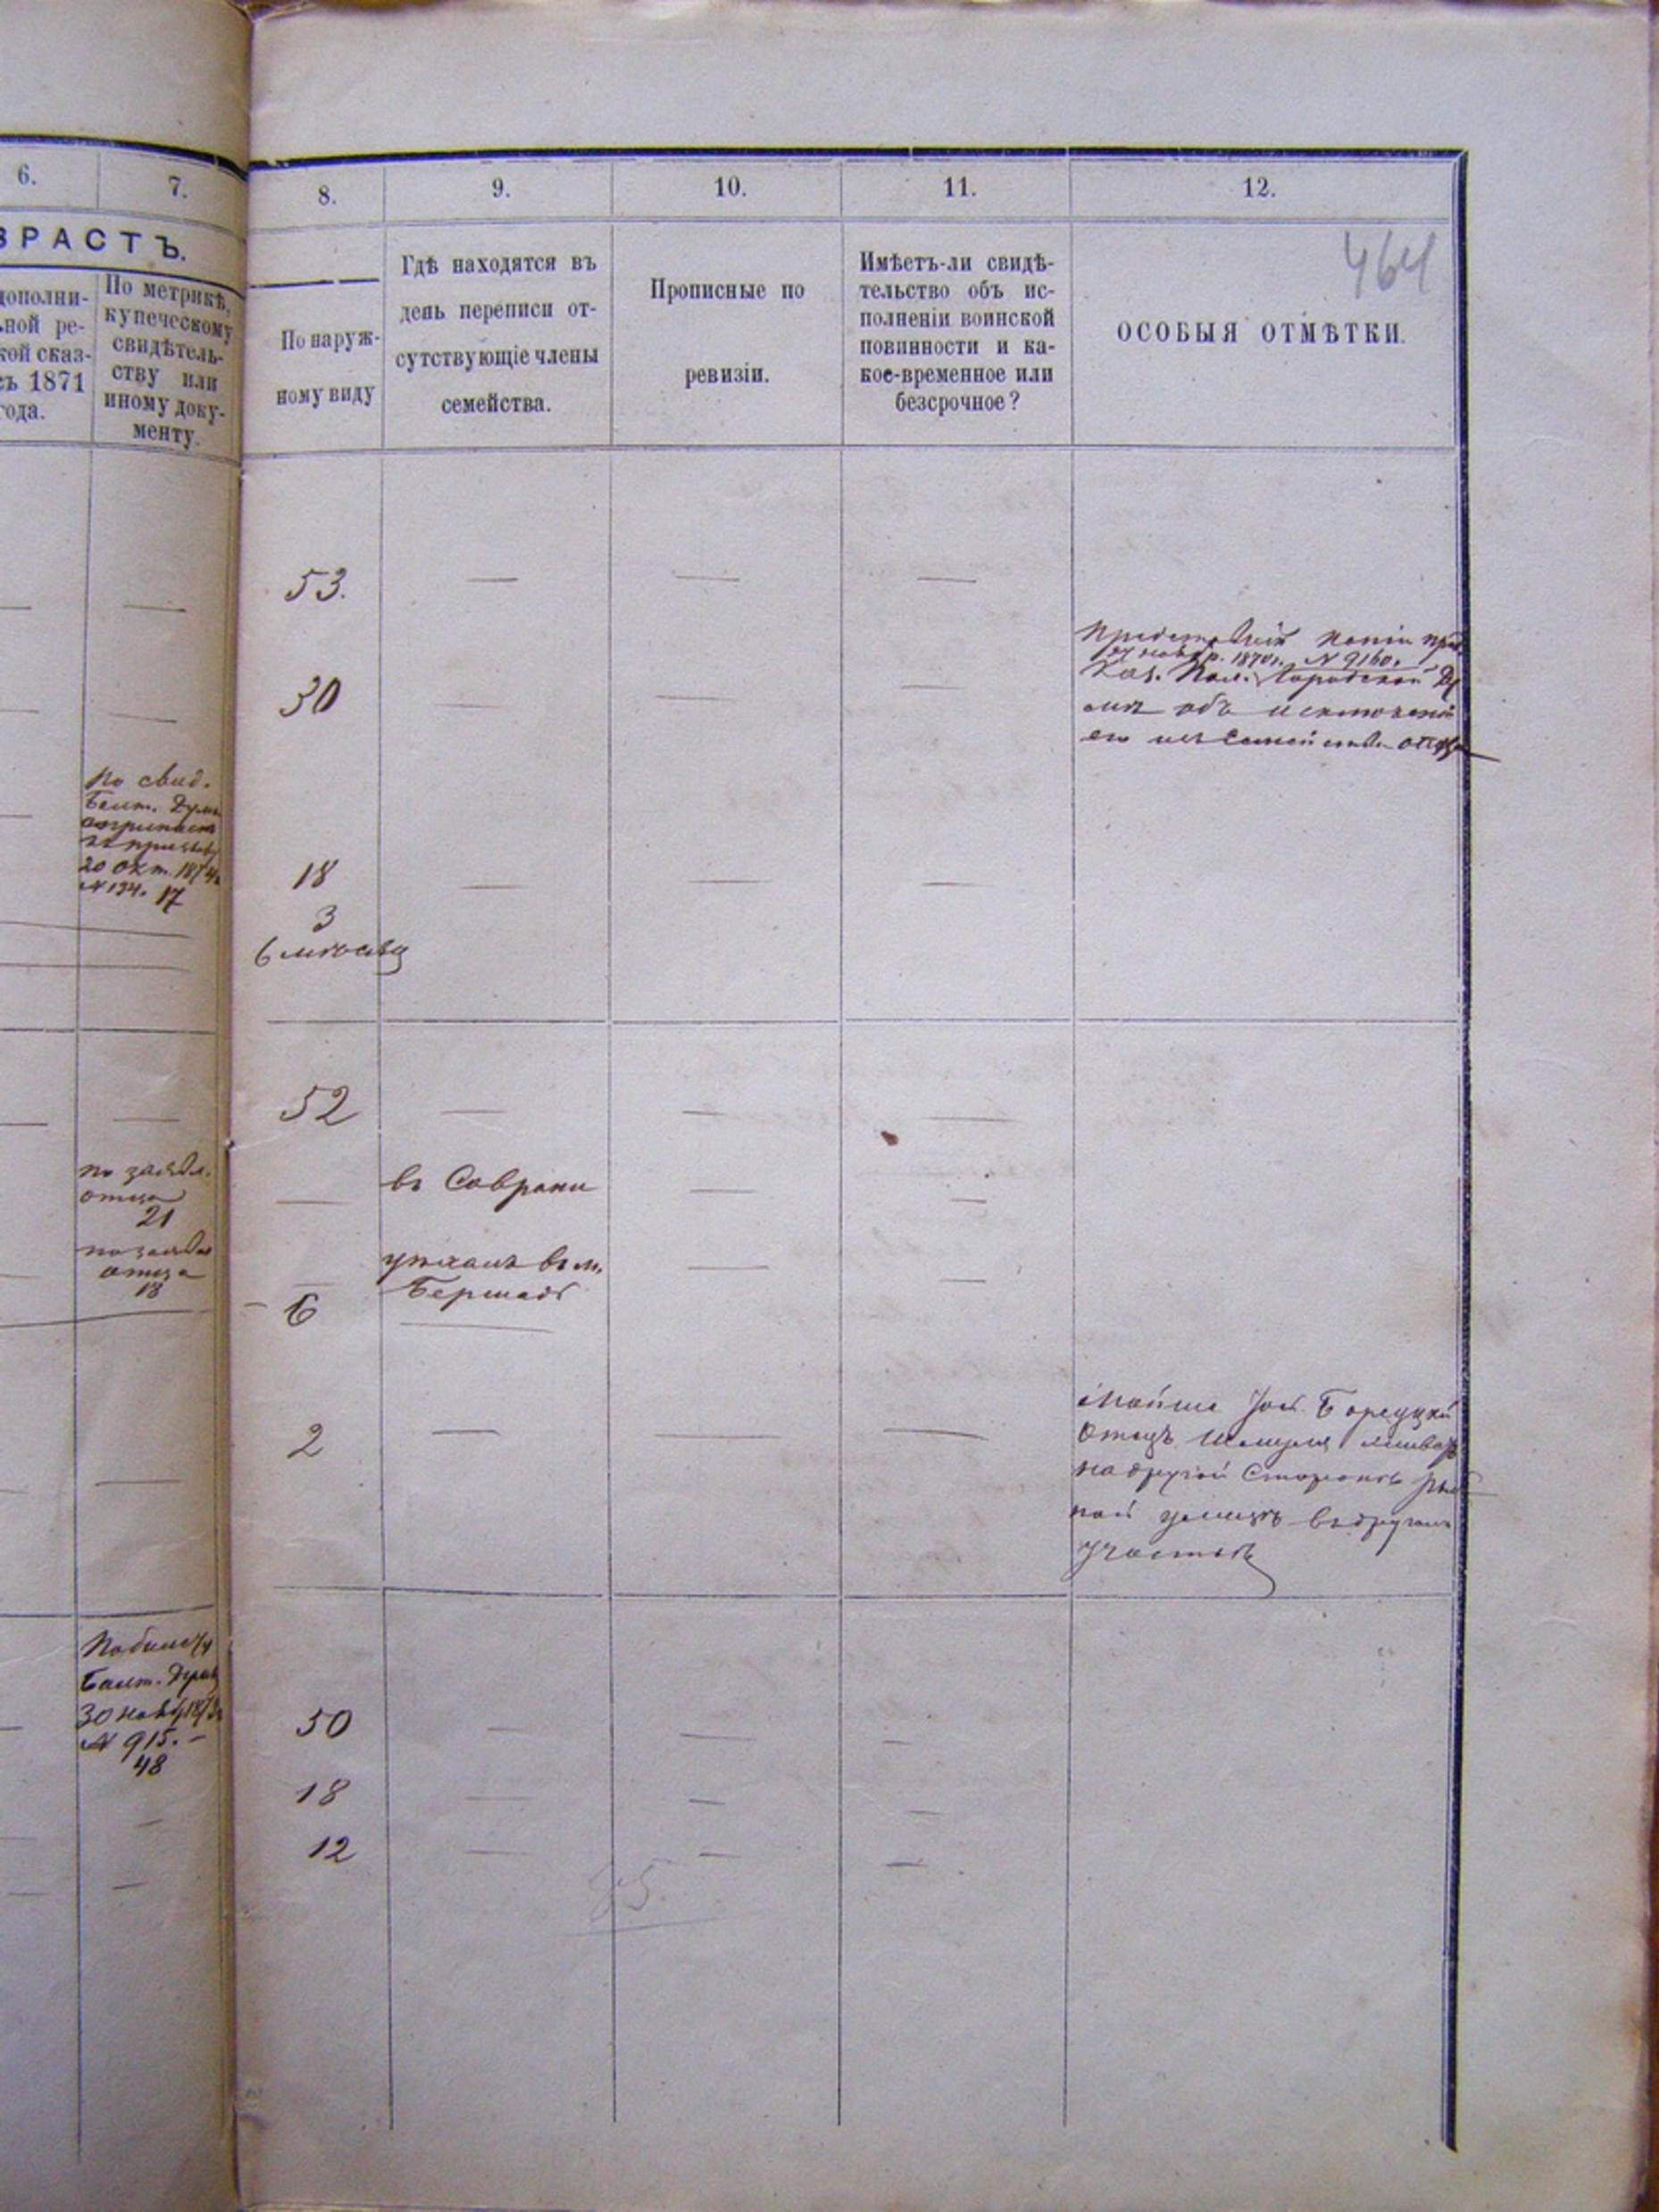 6.
7.
8.
9.
10.
11.
12.
464
ЗРАСТЪ.
дополни-
ьной ре-
кой сказ-
съ 1871
года.
По метрикѣ,
купеческому
свидѣтель-
ству или
иному доку-
менту.
По наруж-
ному виду
Гдѣ находятся въ
день переписи от-
сутствующіе члены
семейства.
Прописные по
ревизіи.
Имѣетъ-ли свидѣ-
тельство объ ис-
полненіи воинской
повинности и ка-
кое-временное или
безсрочное?
ОСОБЫЯ ОТМѢТКИ.
53.
30
1870 г. № 9160.
Городской
объ исключеніи
его изъ семейства отца
По свид.
Балт. Думы
20 Окт. 1874
№ 134. 17
18
3
6 мѣсяц
52
по заявл.
отца
21
въ Саврани
по заявл
отца
18
уѣхалъ въ м.
Бершадь
6
2
Мойше Іос. Борецкій
Отецъ
на другой сторонѣ
улицѣ въ другомъ
участкѣ
По билету
Балт. Думы
30 нояб. 187
№ 915.
48
50
18
12